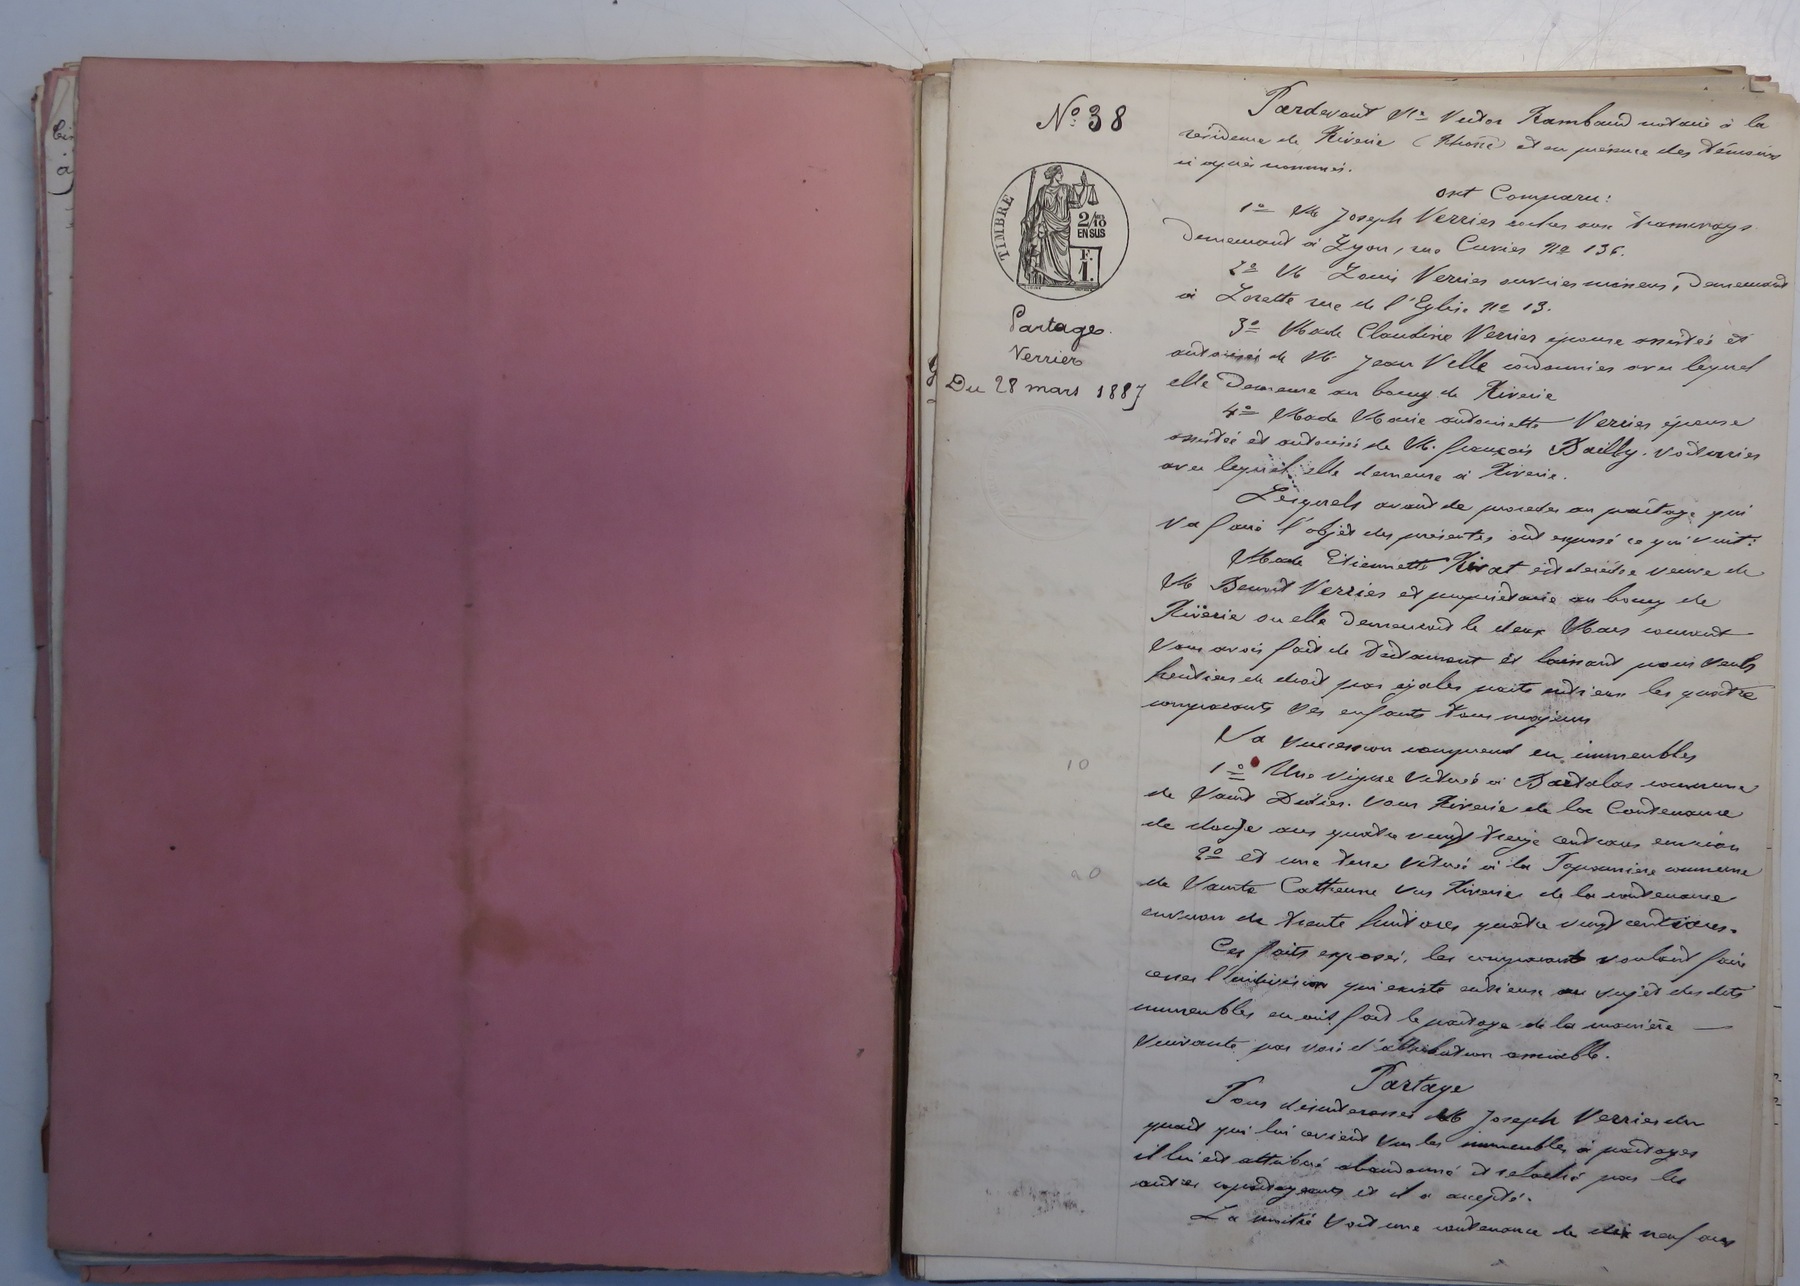 No: 38
TIMBRE
2/10 EN SUS
F. 1.
Partage
Verrier
Du 28 mars 1887
Pardevant Me Victor Rambaud notaire à la
résidence de Riverie (Rhône) et en présence des témoins
ci après nommés.
ont Comparu:
1o M Joseph Verrier cocher aux tramways
Demeurant à Lyon, rue Cuvier no 136.
2o M Louis Verrier ouvrier mineur, Demeurant
à Lorette rue de l'Eglise no 13.
3o Made Claudine Verrier épouse assistée et
autorisée de M. Jean Ville cordonnier avec lequel
elle Demeure au bourg de Riverie
4o Made Marie antoinette Verrier épouse
assistée et autorisée de M. françois Bailly voiturier
avec lequel elle demeure à Riverie.
Lesquels avant de proceder au partage qui
va faire l'objet des présentes ont exposé ce qui suit:
Made Etiennette Rivat est décédée veuve de
M Benoit Verrier et propriétaire au bourg de
Riverie ou elle Demeurait le deux Mars courant
sans avoir fait de Testament et laissant pour seuls
heritiers de droit par égales parts entr'eux les quatre
comparants ses enfants tous majeurs
Sa succession comprend en immeubles
1o Une vigne située à commune
de Saint Didier sous Riverie de la Contenance
de douze ares quatre vingt treize centiares environ
2o et une terre située à la commune
de Sainte Catherine sur Riverie de la contenance
environ de trente huit ares quatre vingt centiares.
Ces faits exposés, les comparants voulant faire
cesser l'indivision qui existe entr'eux au sujet des dits
immeubles en ont fait le partage de la manière
suivante par voie d'attribution amiable.
Partage
Pour désintéresser M Joseph Verrier du
quart qui lui revient sur les immeubles à partager
il lui est attribué abandonné et relaché par les
autres copartageants et il a accepté.
La moitié soit une contenance de dix neuf ares
10
20